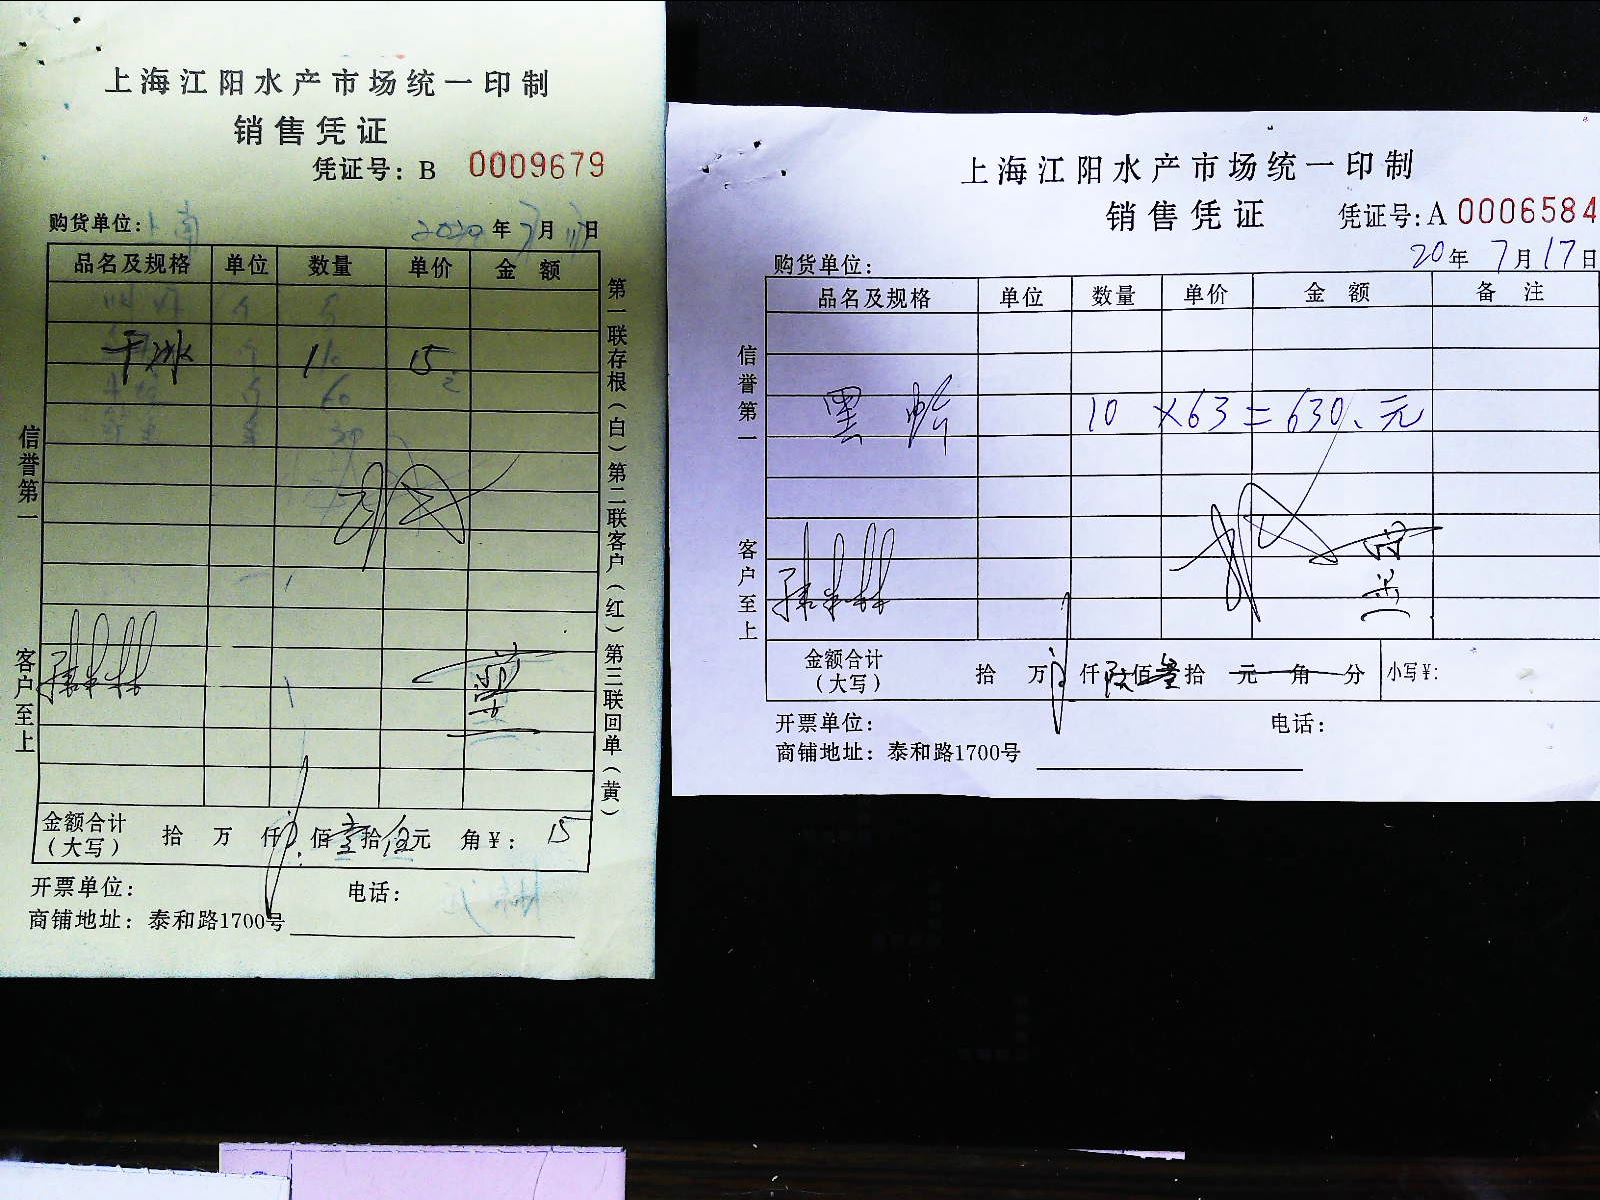 上海江阳水产市场统一印制
销售凭证
凭证号：B 0009679
购货单位：
2020年7月17日
品名及规格 单位 数量 单价 金额
干冰 1 15
信誉第一
客户至上
第一联存根（白）第二联客户（红）第三联回单（黄）
金额合计（大写） 拾 万 仟 佰壹拾伍元 角¥：15
开票单位： 电话：
商铺地址：泰和路1700号
上海江阳水产市场统一印制
销售凭证 凭证号：A 0006584
购货单位： 20年7月17日
品名及规格 单位 数量 单价 金额 备注
黑 10 ×63=630.元
信誉第一
客户至上
金额合计（大写） 拾 万 仟陆佰叁拾 元 角 分 小写¥：
开票单位： 电话：
商铺地址：泰和路1700号